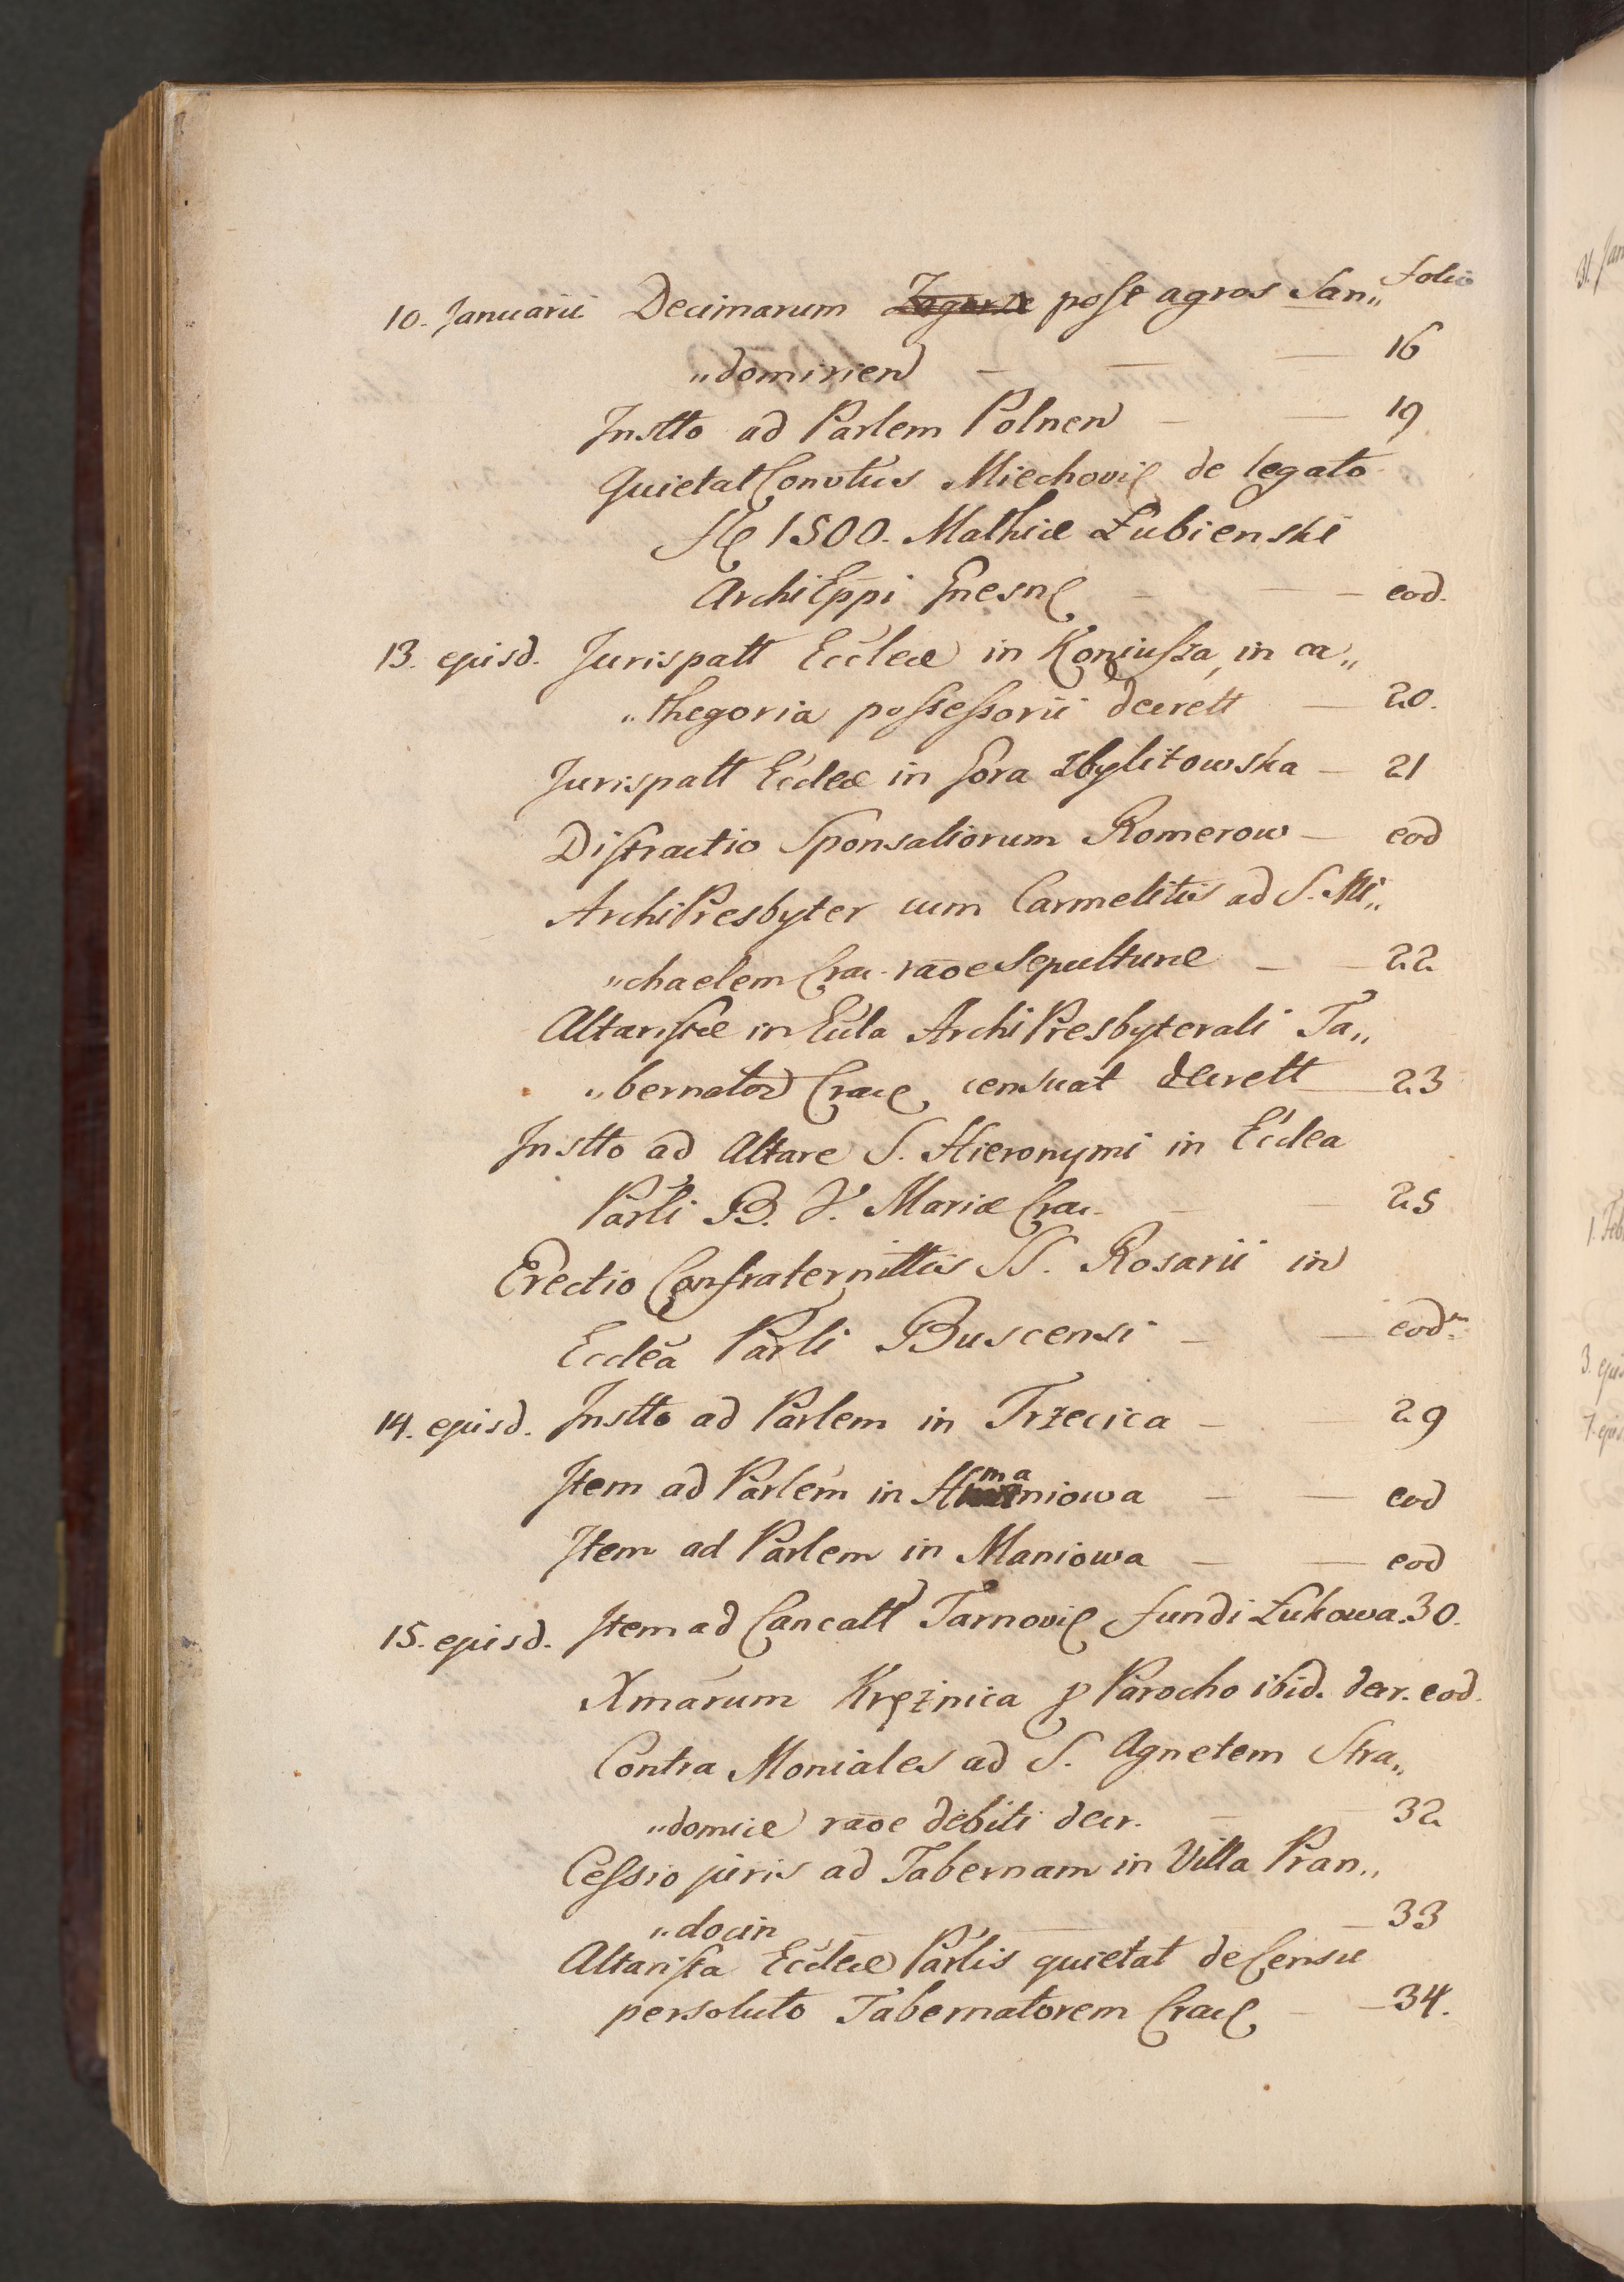 Folio
10. Januarii Decimarum post agros San„
„domirien 16
Instto ad Parlem Polnen 19
Quietat Convtus Miechovi de legato
fl 1500. Mathiæ Łubienski
ArchiEppi Gnesn eod.
13. ejusd. Jurispatt Ecclæ in Koniusza, in ca„
„thegoria possessorii decrett 20.
Jurispatt Ecclæ in Gora Zbylitowska 21
Distractio Sponsaliorum Romerow eod
ArchiPresbyter cum Carmelitis ad S. Mi„
„chaelem Crac. raõe Sepulturæ 22
Altaristæ in Eccla ArchiPresbyterali Ta„
„bernator Crac censuat decrett 23
Instto ad Altare S. Hieronymi in Ecclea
Parli B. V. Mariæ Crac. 25
Erectio Confraternittis SS. Rosarii in
Ecclẽa Parli Buscensi eodm
14. ejusd. Instto ad Parlem in Trzecica 29
Item ad Parlem in niowa eod
ma
Item ad Parlem in Maniowa eod
15. ejusd. Item ad Cancatt Tarnovi fundi Łukowa 30.
Xmarum Krężnica p Parocho ibid. decr. eod.
Contra Moniales ad S. Agnetem Stra„
„domiæ raõe debiti decr. 32
Cessio juris ad Tabernam in Villa Pran„
„docin 33
Altarista Ecclæ Parlis quietat de Censu
persoluto Tabernatorem Crac 34.